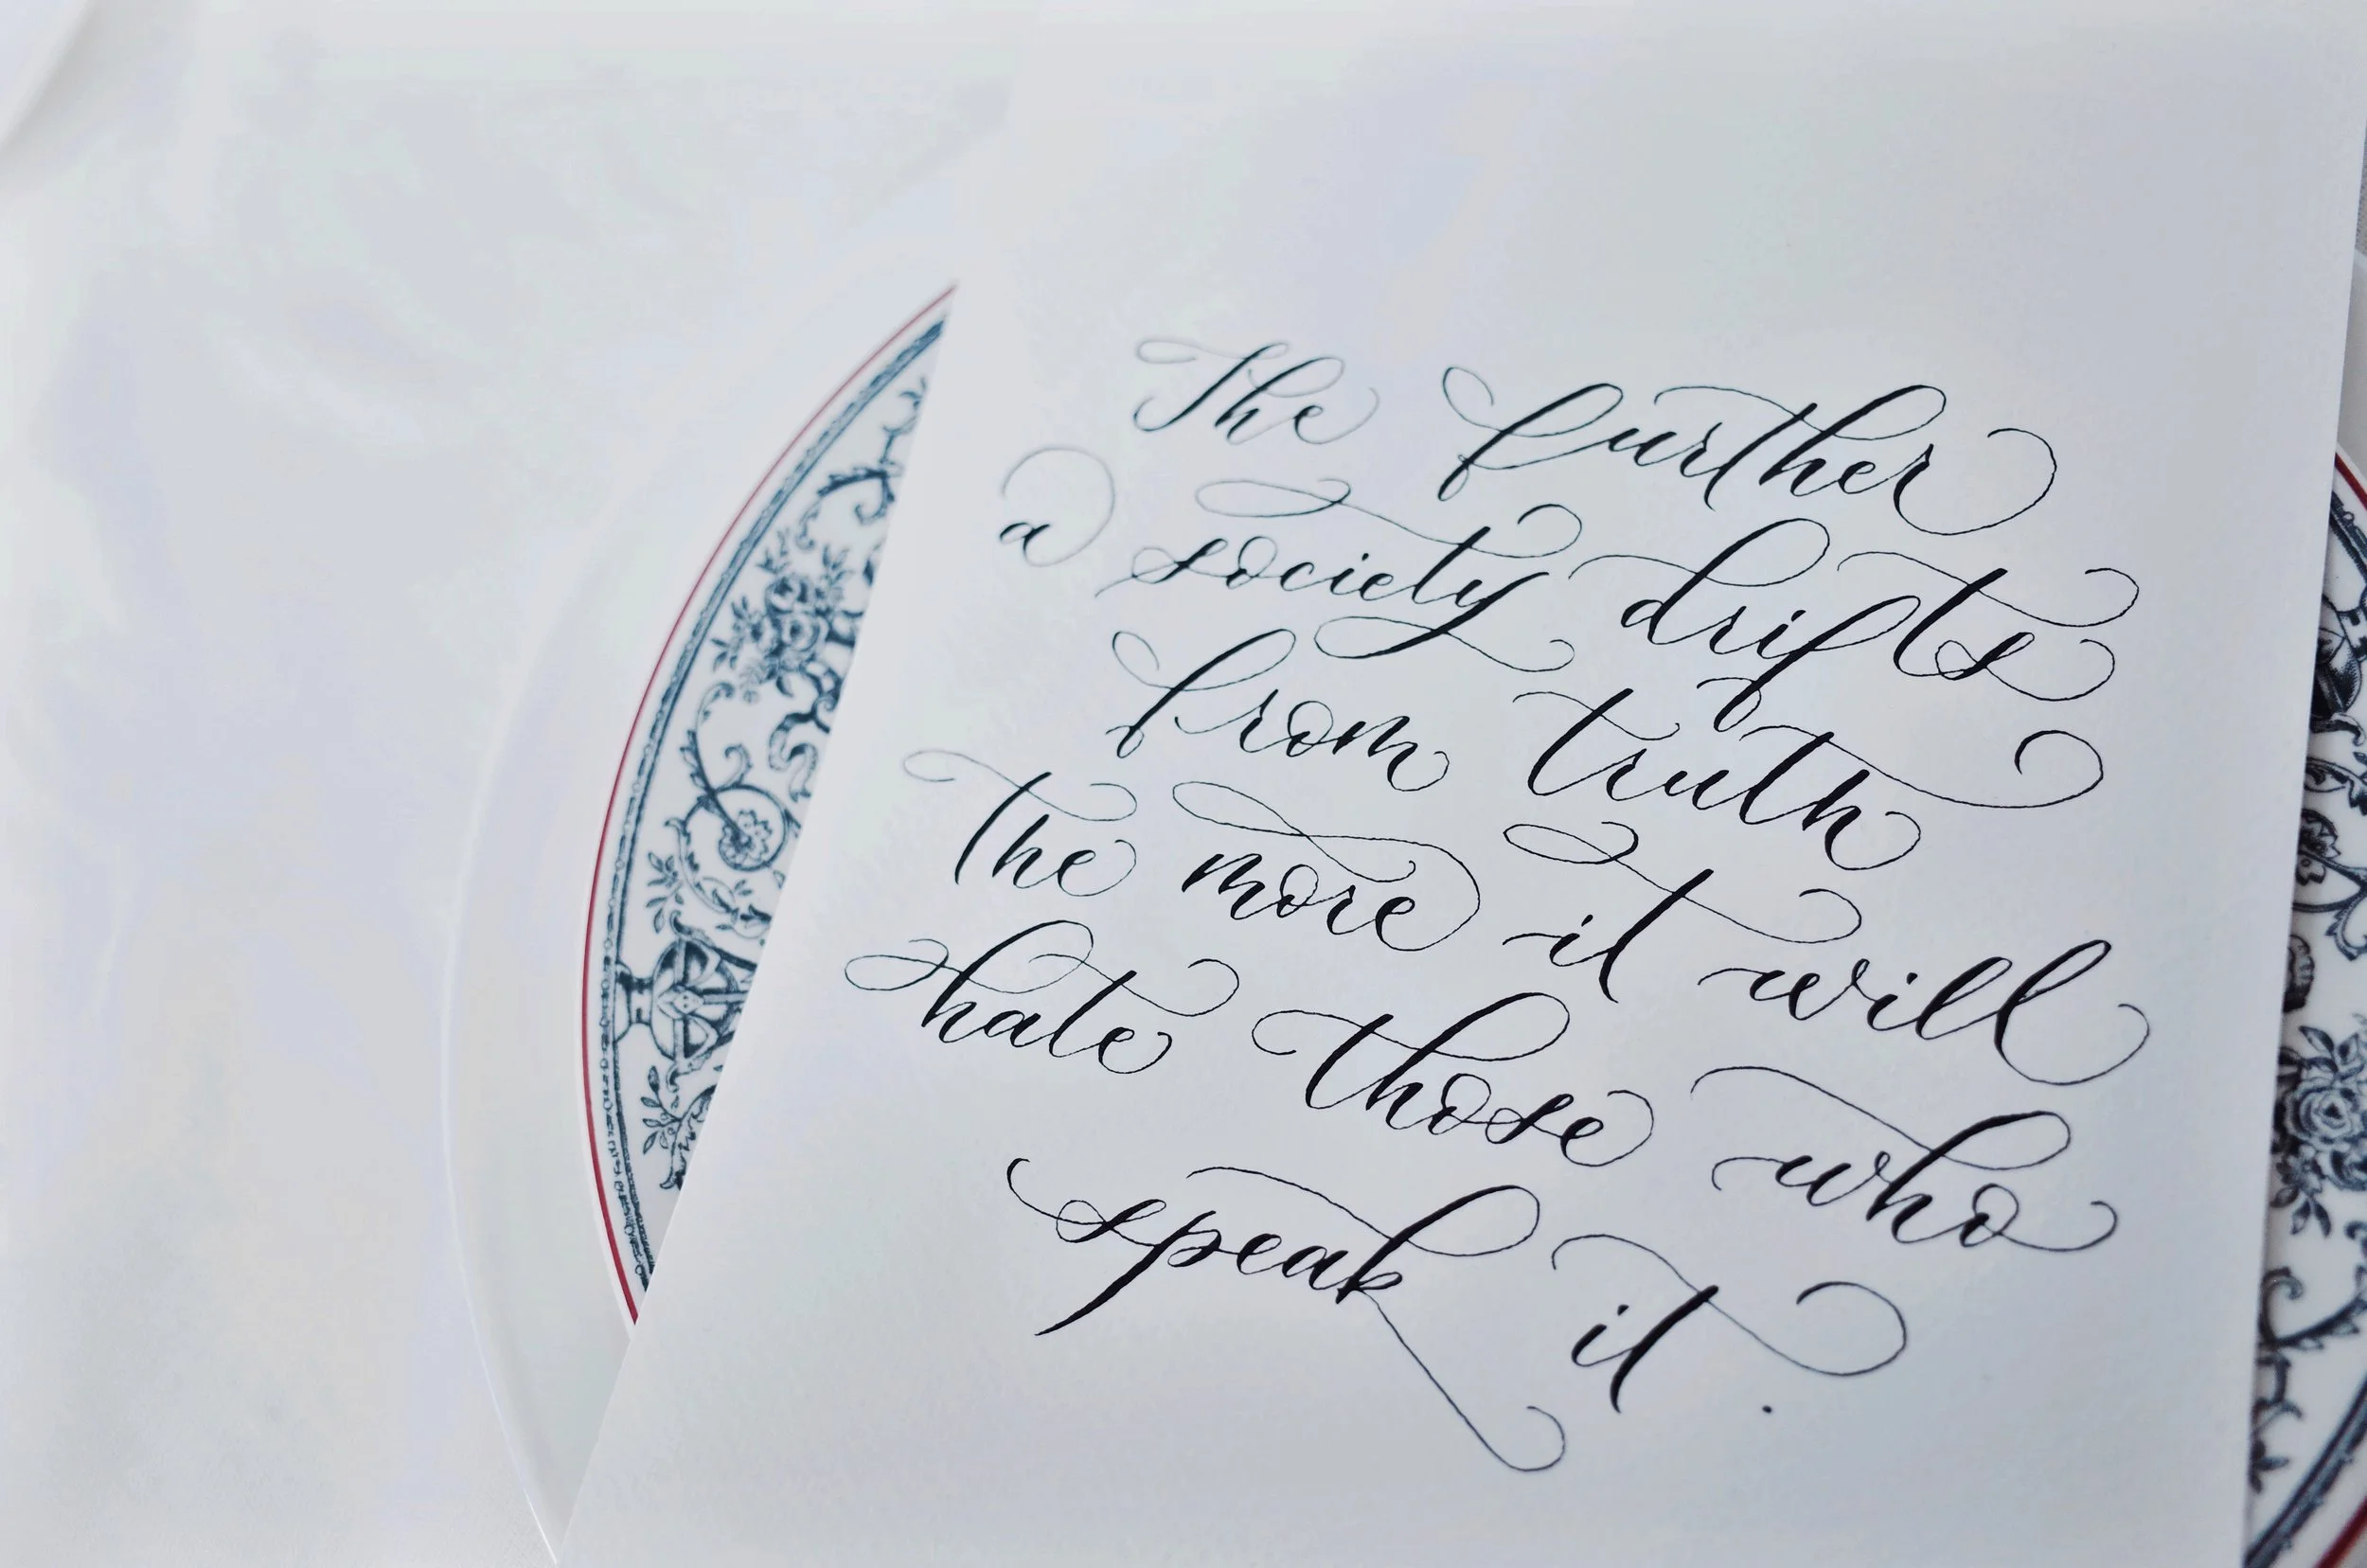 The further
a society drifts
from truth
the more it will
hate those who
speak it.